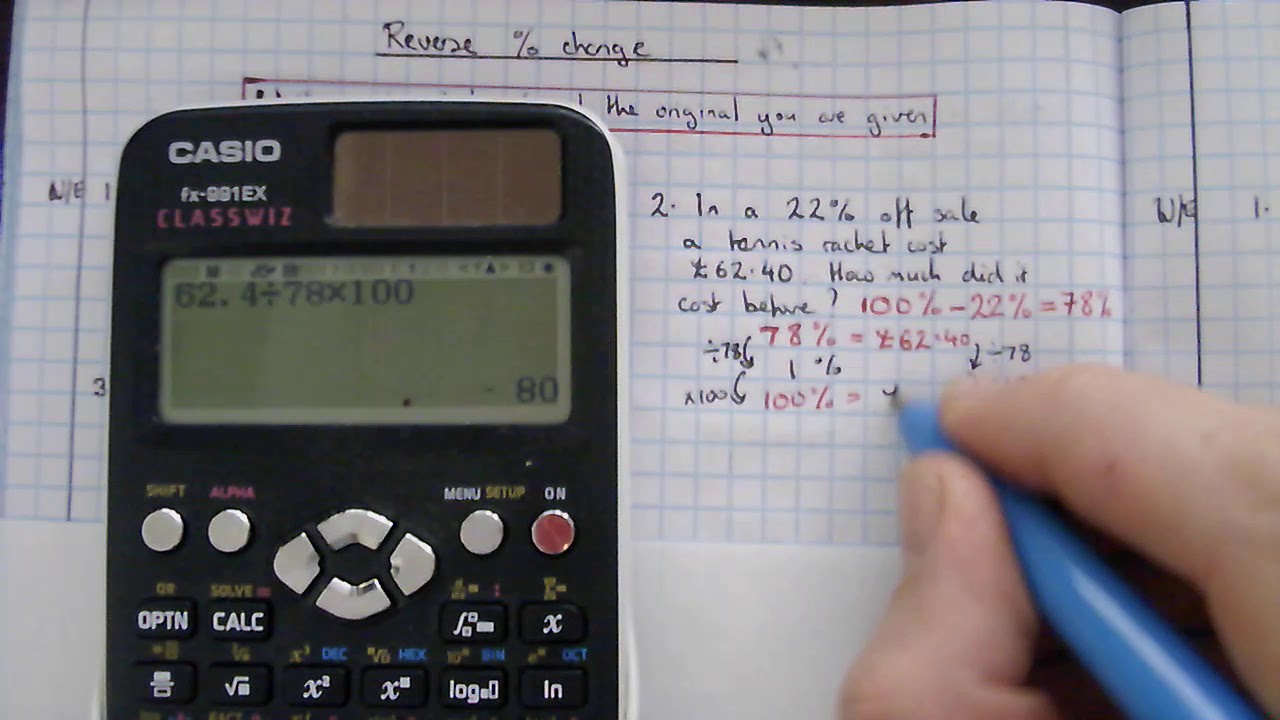 Reverse % change
the original you are given
W/E 1
3
2. In a 22% off sale
a tennis racket cost
£62.40. How much did it
cost before? 100% - 22% = 78%
÷78 78% = £62.40 ÷78
1 %
×100 100% =
W/E 1.
CASIO
fx-991EX
CLASSWIZ
62.4÷78×100
80
SHIFT ALPHA MENU SETUP ON
QR SOLVE =
OPTN CALC x
x³ DEC HEX BIN OCT
x² log ln